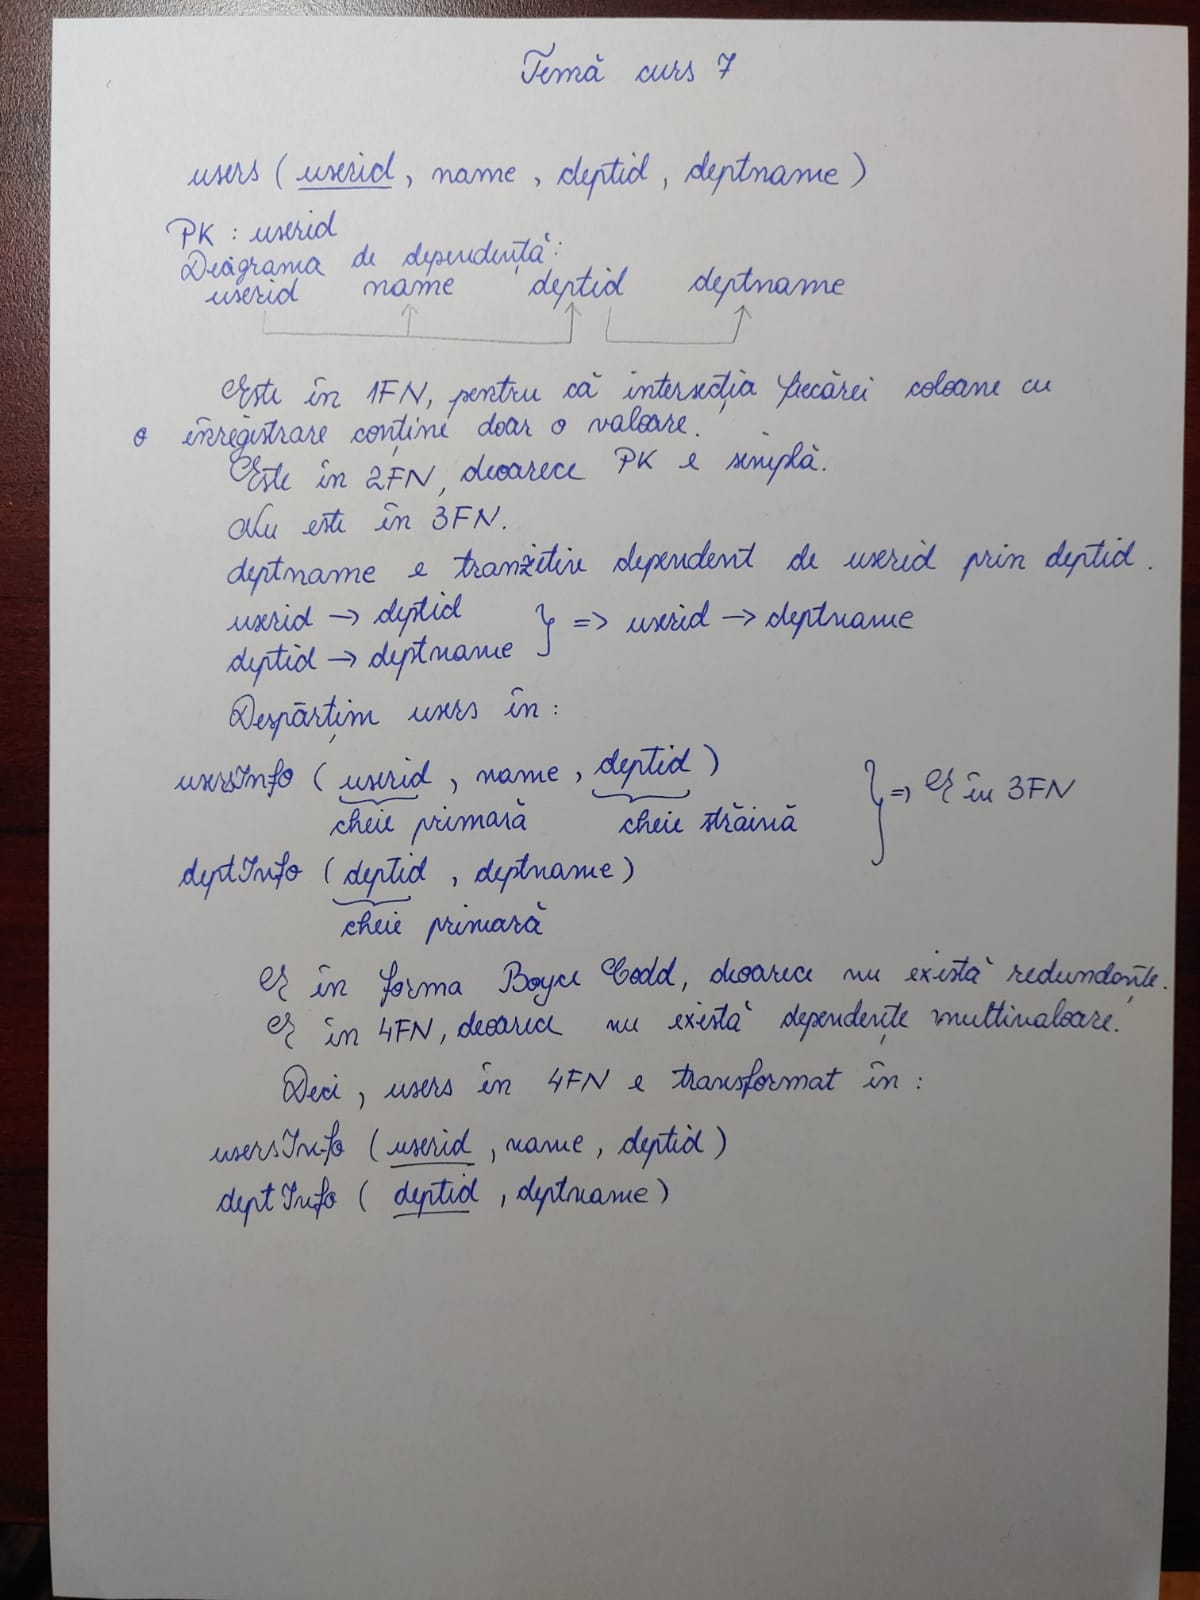 Temă curs 7
users ( userid , name , deptid , deptname )
PK : userid
Diagrama de dependență :
userid name deptid deptname
Este în 1FN, pentru că intersecția fiecărei coloane cu
o înregistrare conține doar o valoare.
Este în 2FN, deoarece PK e simplă.
Nu este în 3FN.
deptname e tranzitiv dependent de userid prin deptid .
userid → deptid
} => userid → deptname
deptid → deptname
Despărțim users în :
usersInfo ( userid , name , deptid )
cheie primară cheie străină
} => E în 3FN
deptInfo ( deptid , deptname )
cheie primară
E în forma Boyce Codd, deoarece nu există redundanțe.
E în 4FN, deoarece nu există dependențe multivaloare.
Deci , users în 4FN e transformat în :
usersInfo ( userid , name , deptid )
deptInfo ( deptid , deptname )